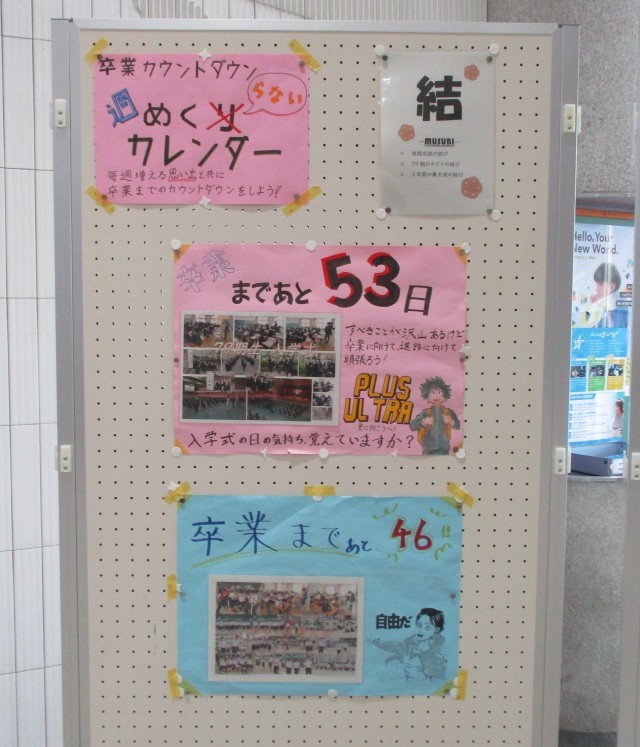 卒業カウントダウン
週めくり
らない
カレンダー
毎週増える思い出と共に
卒業までのカウントダウンをしよう!
結
MUSUBI
卒業
まであと53日
79期生 入学式
すべきことが沢山あるけど
卒業に向けて、進路に向けて
頑張ろう!
PLUS
ULTRA
更に向こうへ!
入学式の日の気持ち、覚えていますか?
卒業まであと46
自由だ
Hello, Your
New World.